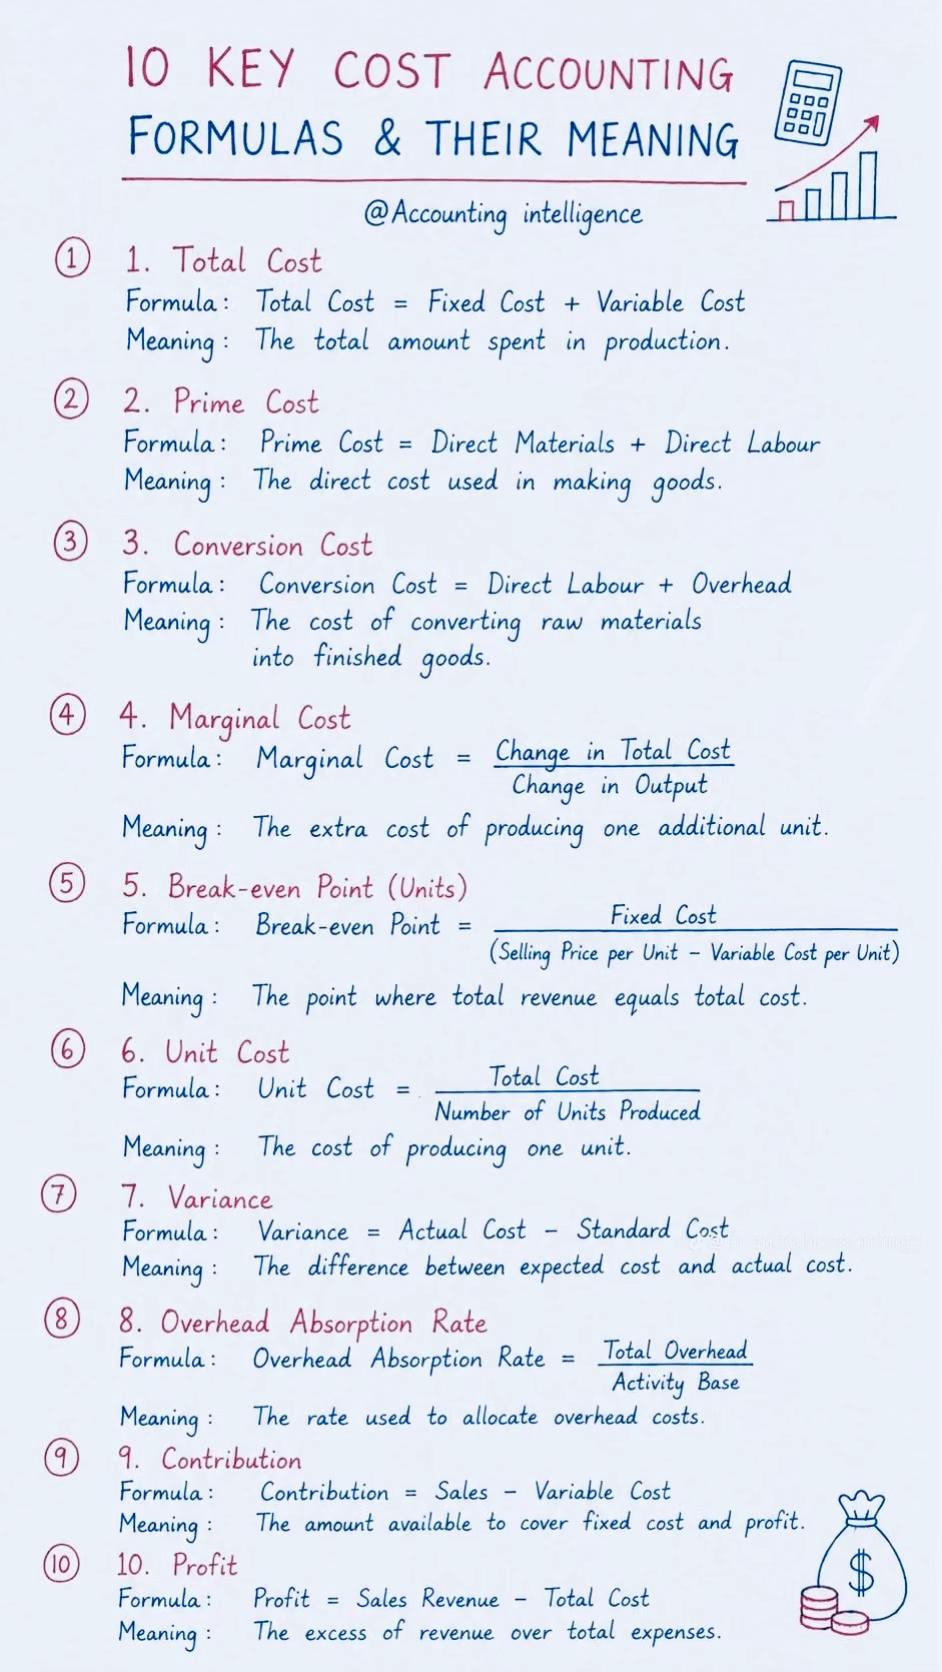 10 KEY COST ACCOUNTING
FORMULAS & THEIR MEANING
@Accounting intelligence
① 1. Total Cost
Formula: Total Cost = Fixed Cost + Variable Cost
Meaning: The total amount spent in production.
② 2. Prime Cost
Formula: Prime Cost = Direct Materials + Direct Labour
Meaning: The direct cost used in making goods.
③ 3. Conversion Cost
Formula: Conversion Cost = Direct Labour + Overhead
Meaning: The cost of converting raw materials
into finished goods.
④ 4. Marginal Cost
Formula: Marginal Cost = Change in Total Cost
Change in Output
Meaning: The extra cost of producing one additional unit.
⑤ 5. Break-even Point (Units)
Formula: Break-even Point = Fixed Cost
(Selling Price per Unit - Variable Cost per Unit)
Meaning: The point where total revenue equals total cost.
⑥ 6. Unit Cost
Formula: Unit Cost = Total Cost
Number of Units Produced
Meaning: The cost of producing one unit.
⑦ 7. Variance
Formula: Variance = Actual Cost - Standard Cost
Meaning: The difference between expected cost and actual cost.
⑧ 8. Overhead Absorption Rate
Formula: Overhead Absorption Rate = Total Overhead
Activity Base
Meaning: The rate used to allocate overhead costs.
⑨ 9. Contribution
Formula: Contribution = Sales - Variable Cost
Meaning: The amount available to cover fixed cost and profit.
⑩ 10. Profit
Formula: Profit = Sales Revenue - Total Cost
Meaning: The excess of revenue over total expenses.
$